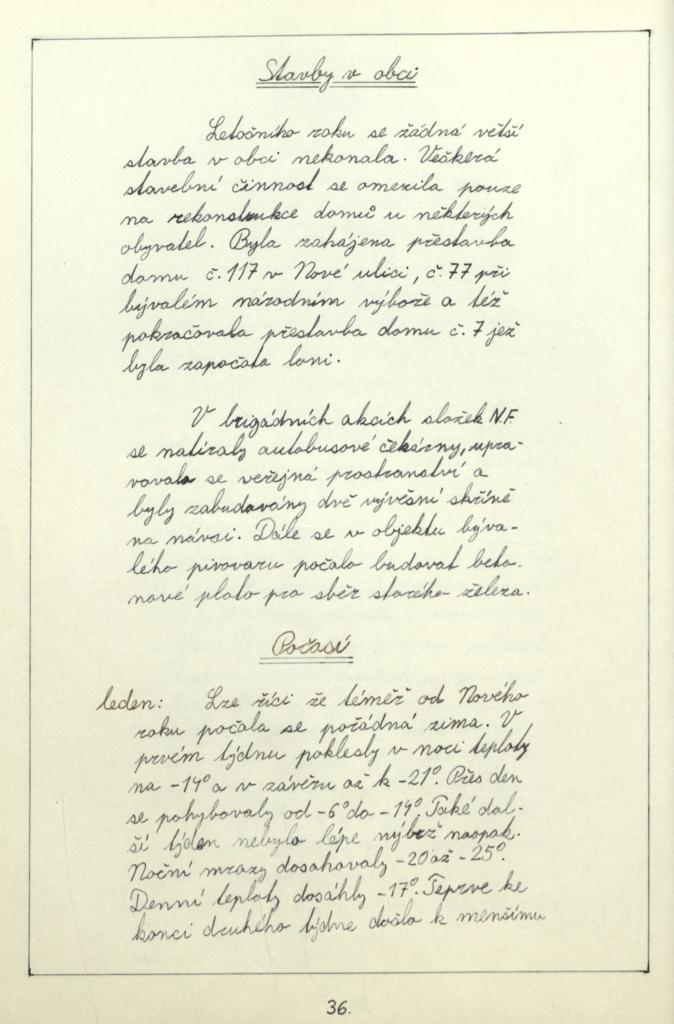 Stavby v obci
Letočního roku se žádná větší
stavba v obci nekonala. Veškerá
stavební činnost se omezila pouze
na rekonstrukce domů u některých
obyvatel. Byla zahájena přestavba
domu č. 117 v Nové ulici, č. 77 při
bývalém národním výboře a též
pokračovala přestavba domu č. 7 jež
byla započata loni.
V brigádních akcích složek N.F.
se natíraly autobusové čekárny, upra-
vovala se veřejná prostranství a
byly zabudovány dvě vývěsní skříně
na návsi. Dále se v objektu býva-
lého pivovaru počalo budovat beto-
nové plato pro sběr starého železa.
Počasí
leden: Lze říci že téměř od Nového
roku počala se pořádná zima. V
prvém týdnu poklesly v noci teploty
na -14° a v závěru až k -21°. Přes den
se pohybovaly od -6° do -14°. Také dal-
ší týden nebylo lépe nýbrž naopak.
Noční mrazy dosahovaly -20 až -25°.
Denní teploty dosáhly -17°. Teprve ke
konci druhého týdne došlo k menšímu
36.